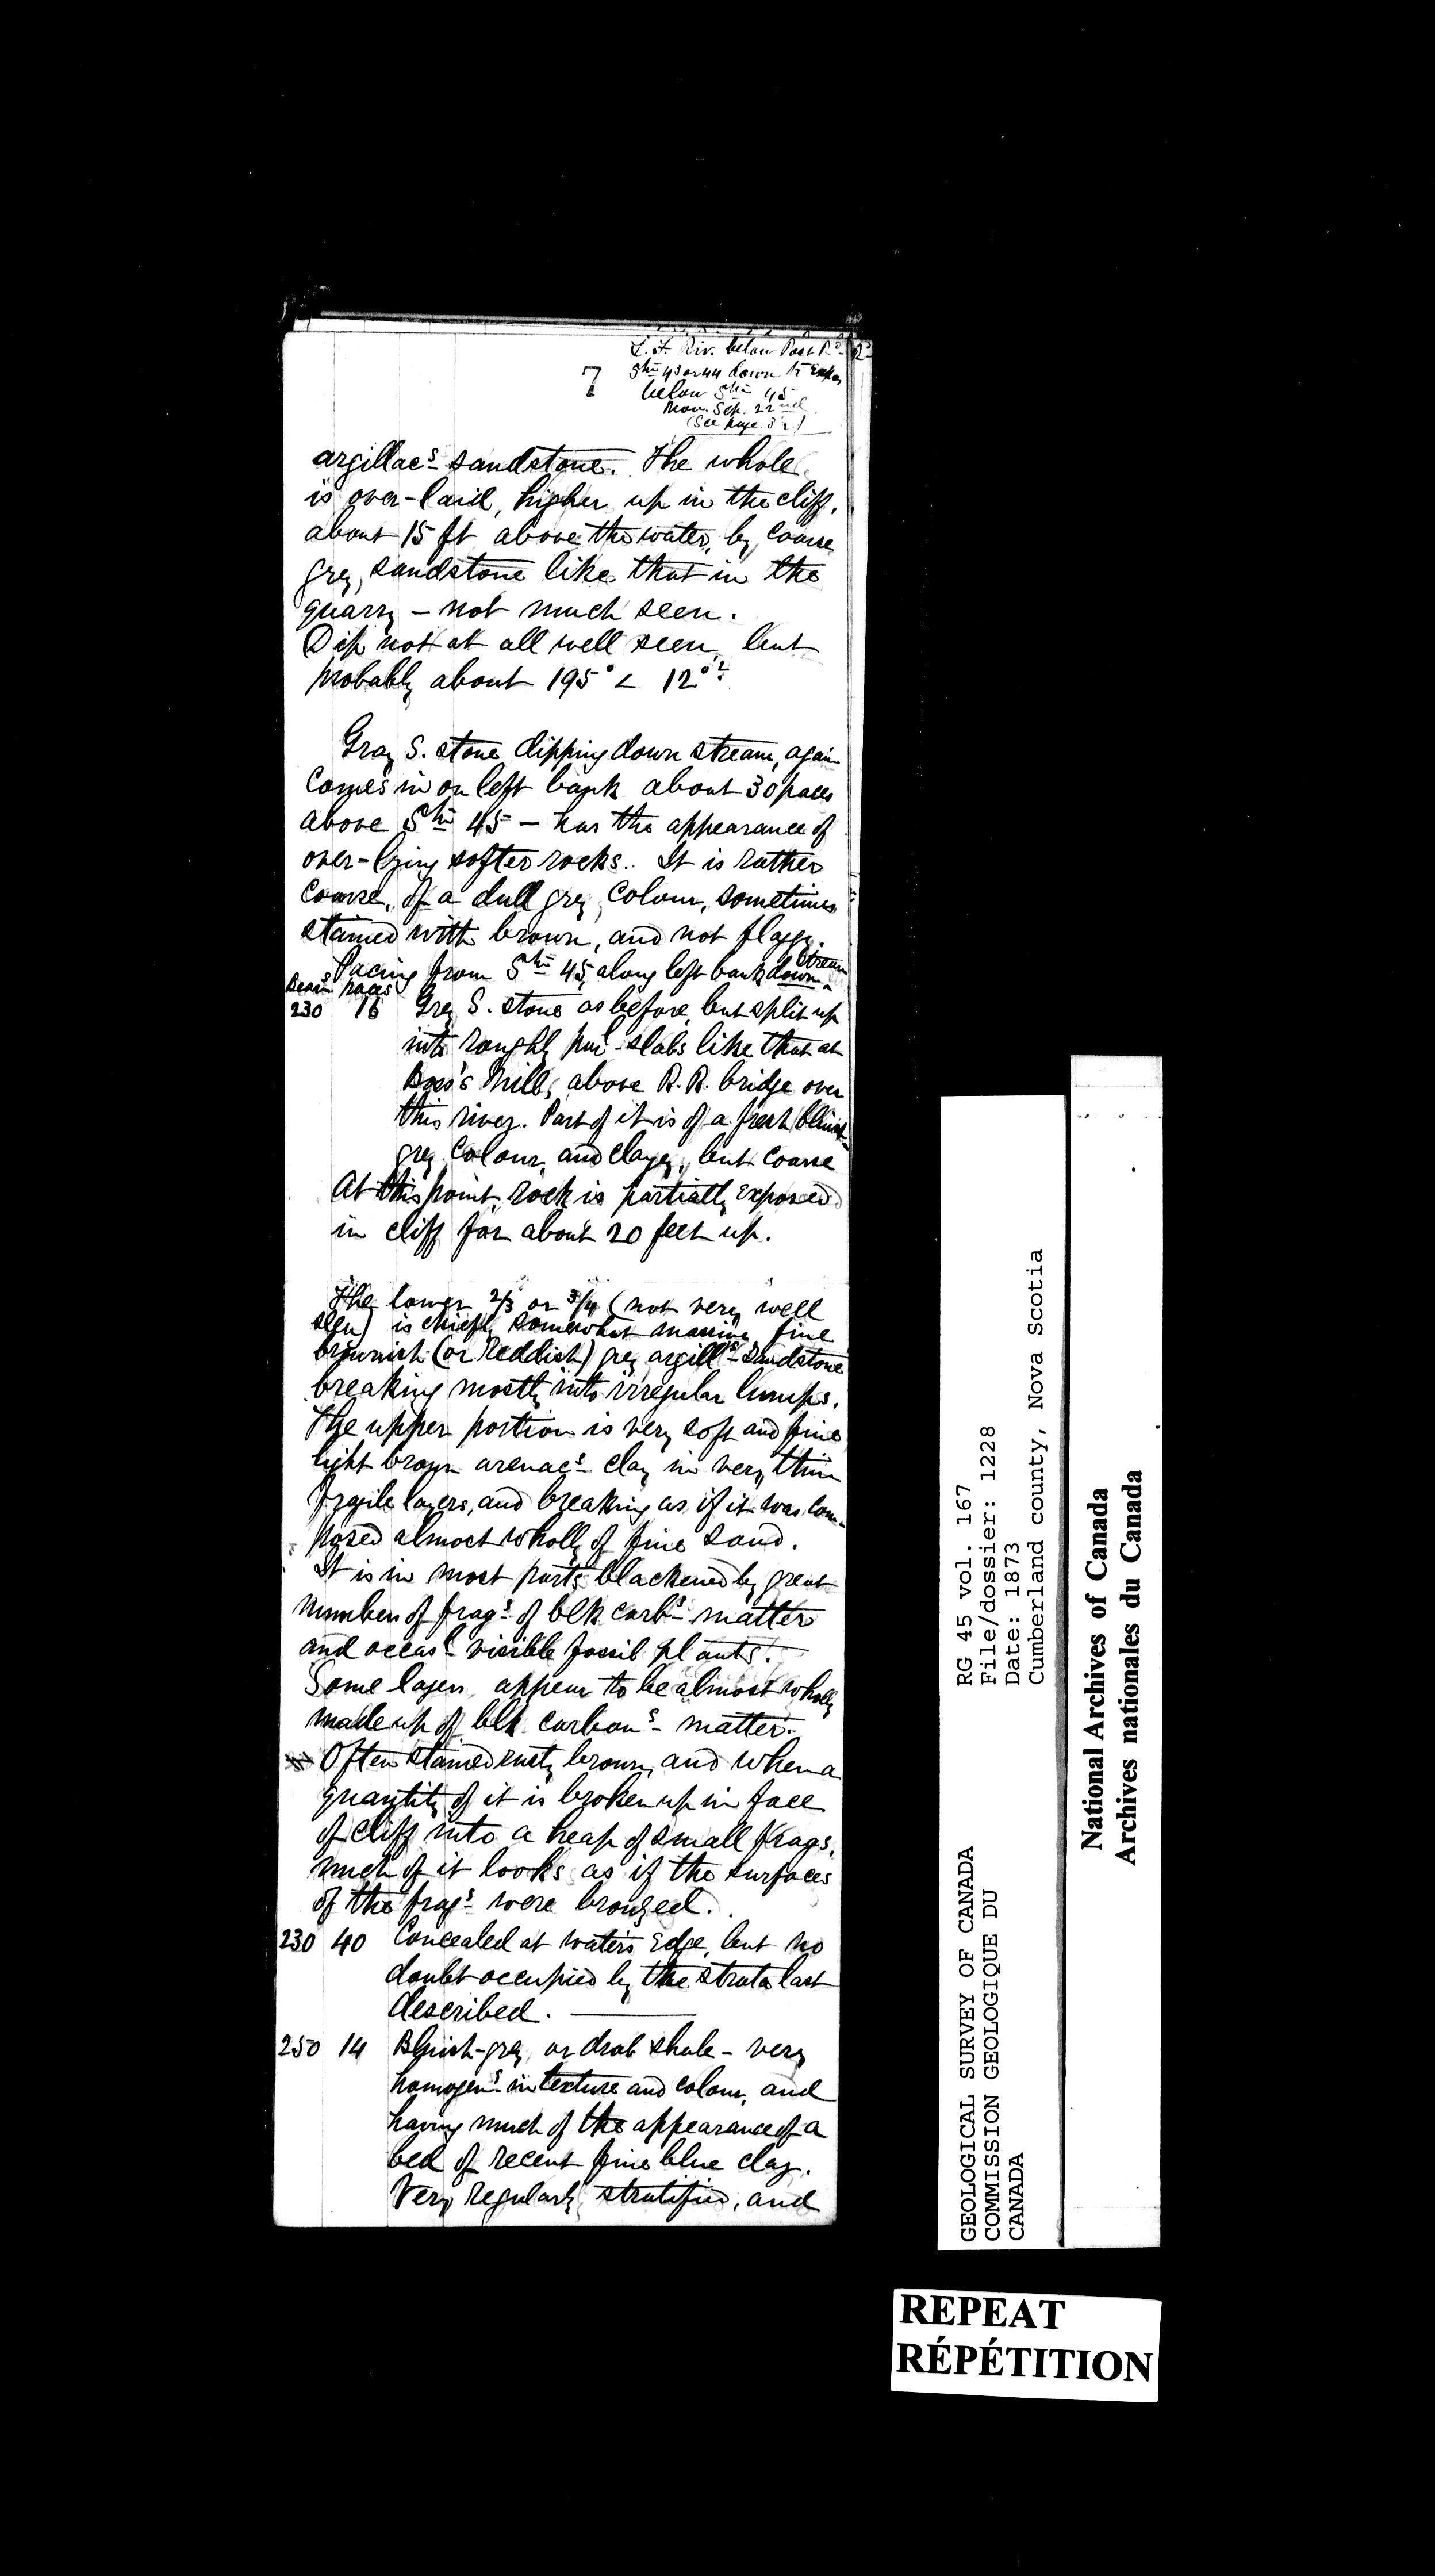 L. F. Riv. below Post Rd
7 Stn 43 or 44 down to Expos
below Stn 45
Mon. Sep. 22nd
(See page
argillacs sandstone. The whole
is over-laid, higher up in the cliff,
about 15 ft above the water, by coarse
grey sandstone like that in the
quarry – not much seen.
Dip not at all well seen, but
probably about 195° < 12°?
Gray S. stone dipping down stream, again
comes in on left bank about 30 paces
above Stn 45 – has the appearance of
over-lying softer rocks. It is rather
coarse, of a dull grey colour, sometimes
stained with brown, and not flaggy.
Pacing from Stn 45, along left bank down stream
Bearing paces
230 16 Grey S. stone as before, but split up
into roughly slabs like that at
Mills above R.R. bridge over
this river. Part of it is of a fresh bluish-
grey colour, and clayey, but coarse
At this point, rock is partially exposed
in cliff for about 20 feet up.
The lower 2/3 or 3/4 (not very well
seen) is chiefly somewhat massive fine
brownish (or reddish) grey argills- Sandstone
breaking mostly into irregular lumps.
The upper portion is very soft and fine
light brown arenacs- clay in very thin
fragile layers, and breaking as if it was com-
posed almost wholly of fine sand.
It is in most parts blackened by great
number of frags of blk carbs- matter
and occasl- visible fossil plants.
Some layers appear to be almost wholly
made up of blk carbons- matter.
Often stained rusty brown, and when a
quantity of it is broken up in face
of cliff into a heap of small frags,
much of it looks as if the surfaces
of the frags were bronzed.
230 40 Concealed at waters edge, but no
doubt occupied by the strata last
described.
250 14 Bluish-grey or drab shale – very
homogens- in texture and colour, and
having much of the appearance of a
bed of recent fine blue clay.
Very regularly stratified, and
GEOLOGICAL SURVEY OF CANADA
COMMISSION GEOLOGIQUE DU
CANADA
RG 45 vol. 167
File/dossier: 1228
Date: 1873
Cumberland county, Nova Scotia
National Archives of Canada
Archives nationales du Canada
REPEAT
RÉPÉTITION